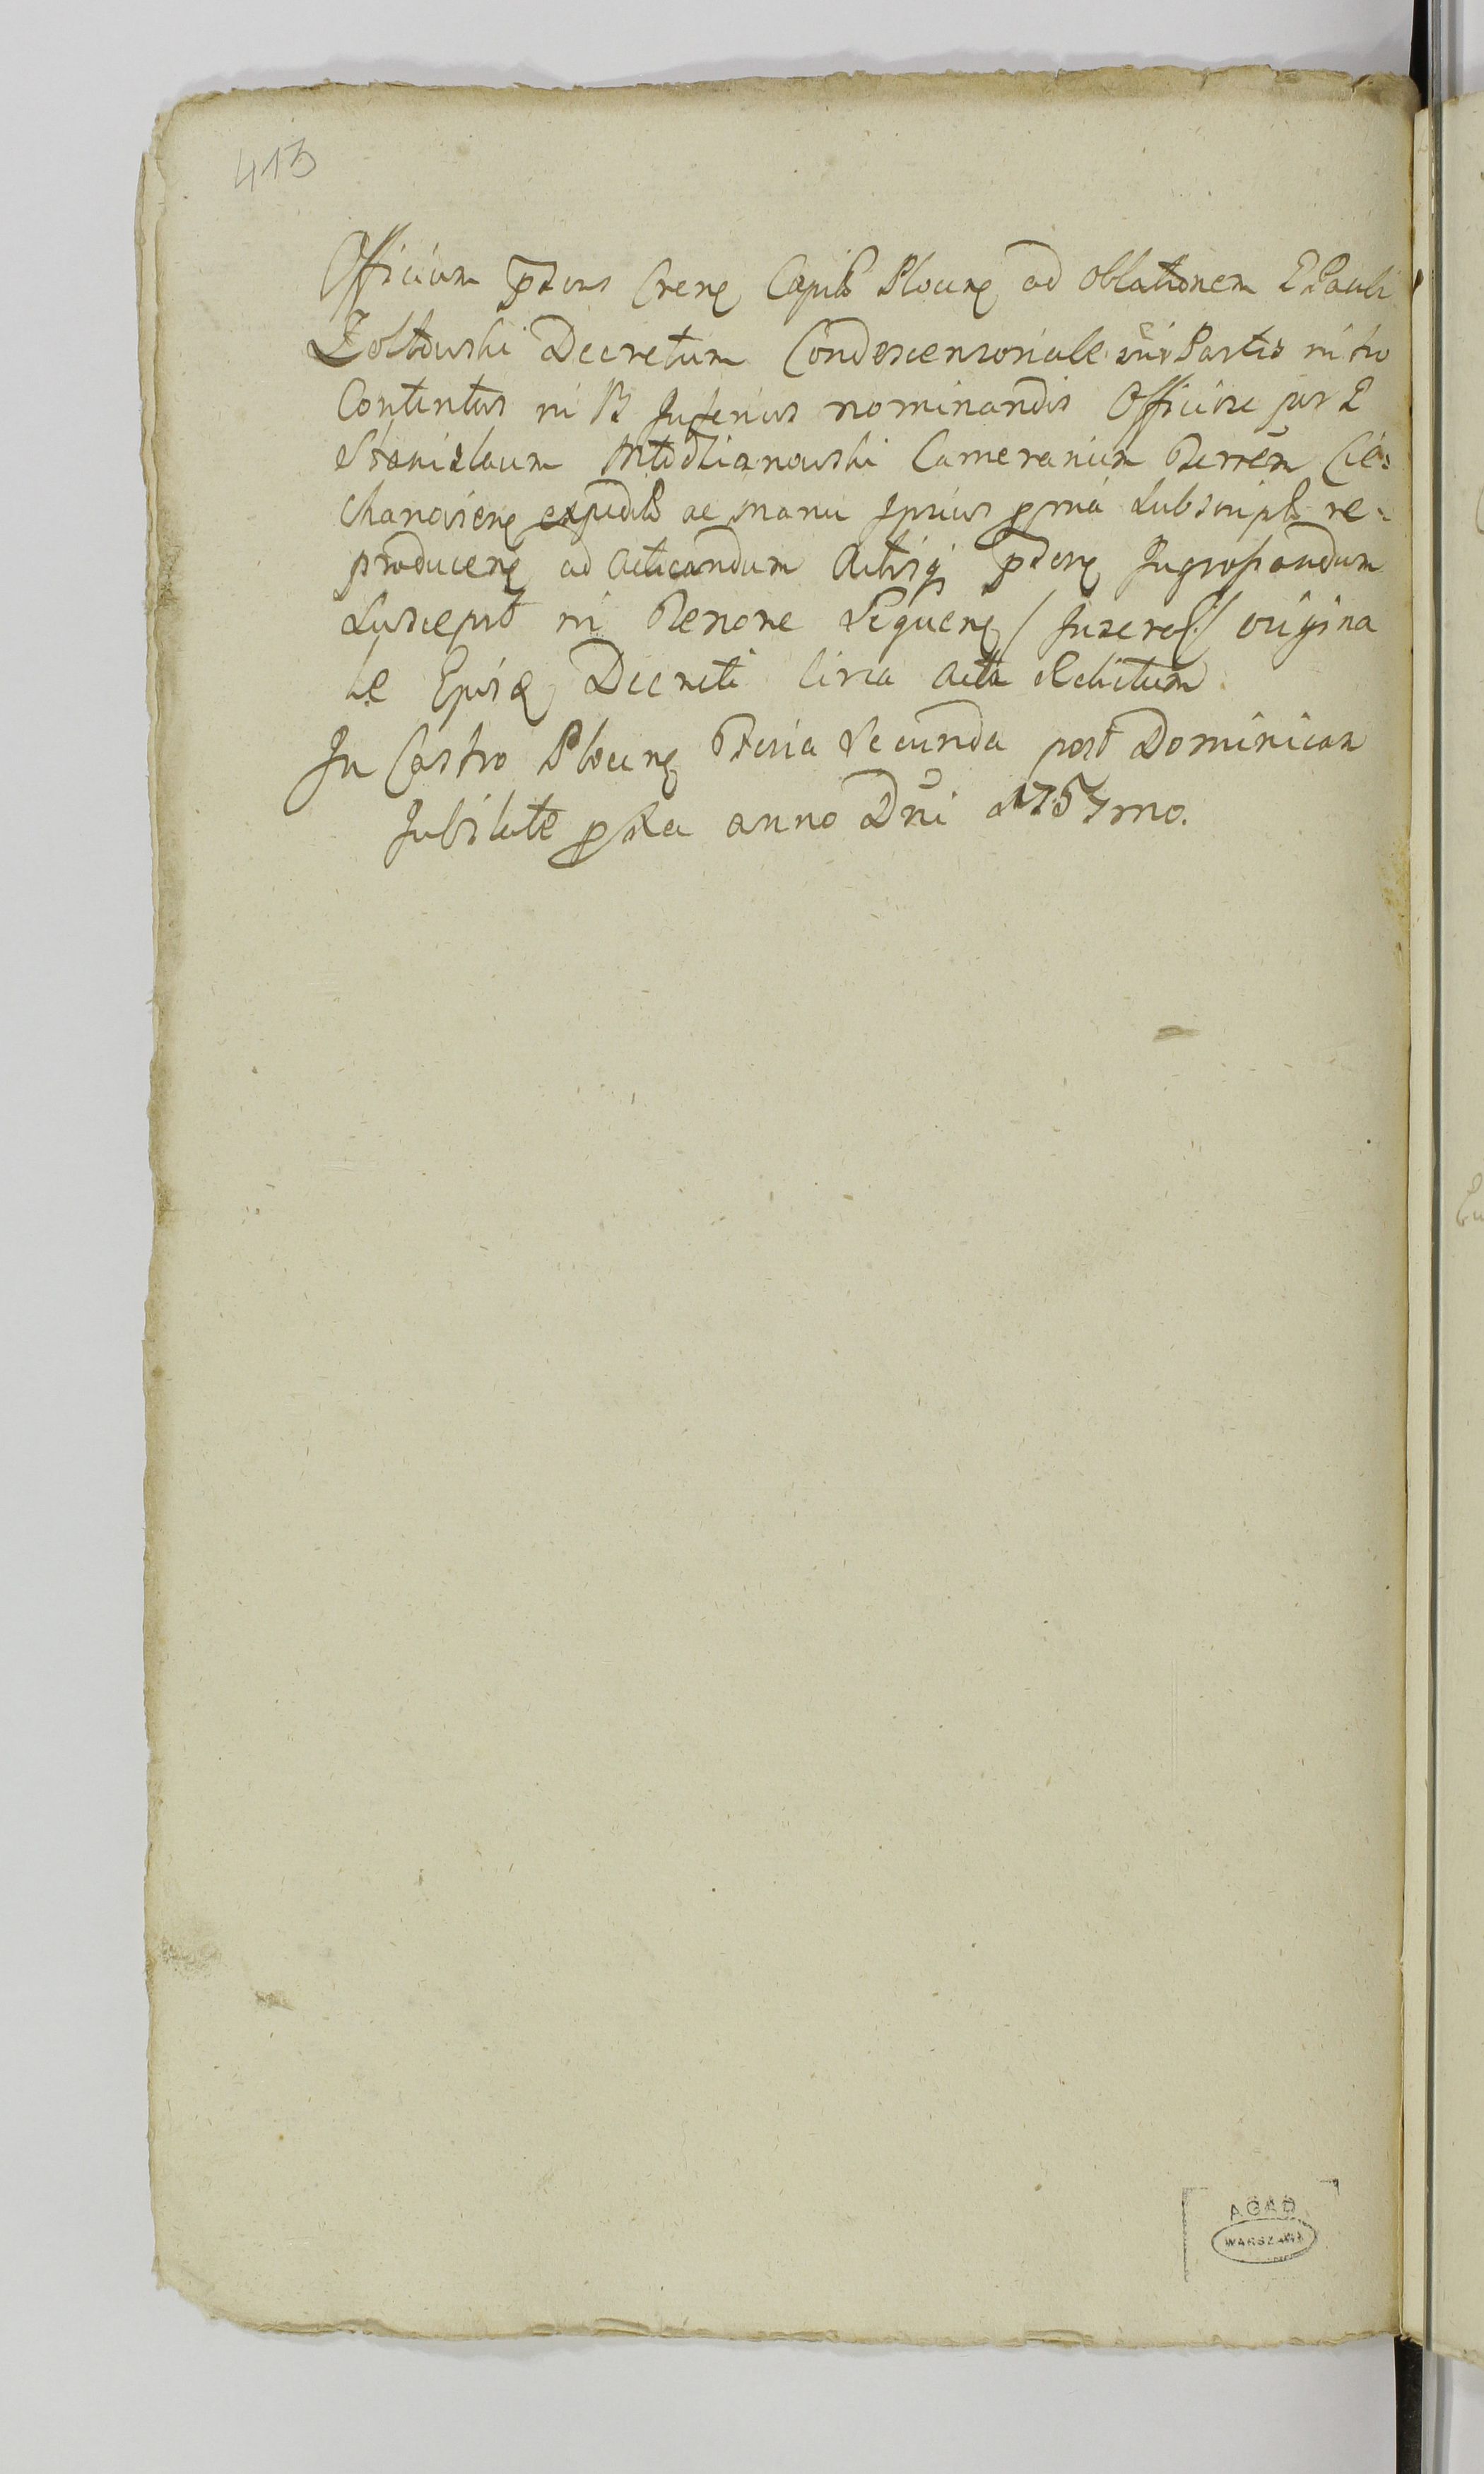 413
Officium Crene Capit Plocene ad oblationem Pauli
Zołtowski Decretum Condescensoriale Partis
Contentus in Inferius nominandis Officiose per
Stanislaum Modlianowski Camerarium Terren Cie=
chanoviene expedit ac manu ipsius ppria Subscript re=
producene ad acticandum Actisq Ingrossandum
Suscepit in Tenore Sequene / Inseret / origina
le Ejusq Decreti circa acta Relictum
In Castro Plocene Feria Secunda post Dominicam
Jubilate pxa anno Dni 1757mo.
AGAD
WARSZAWA